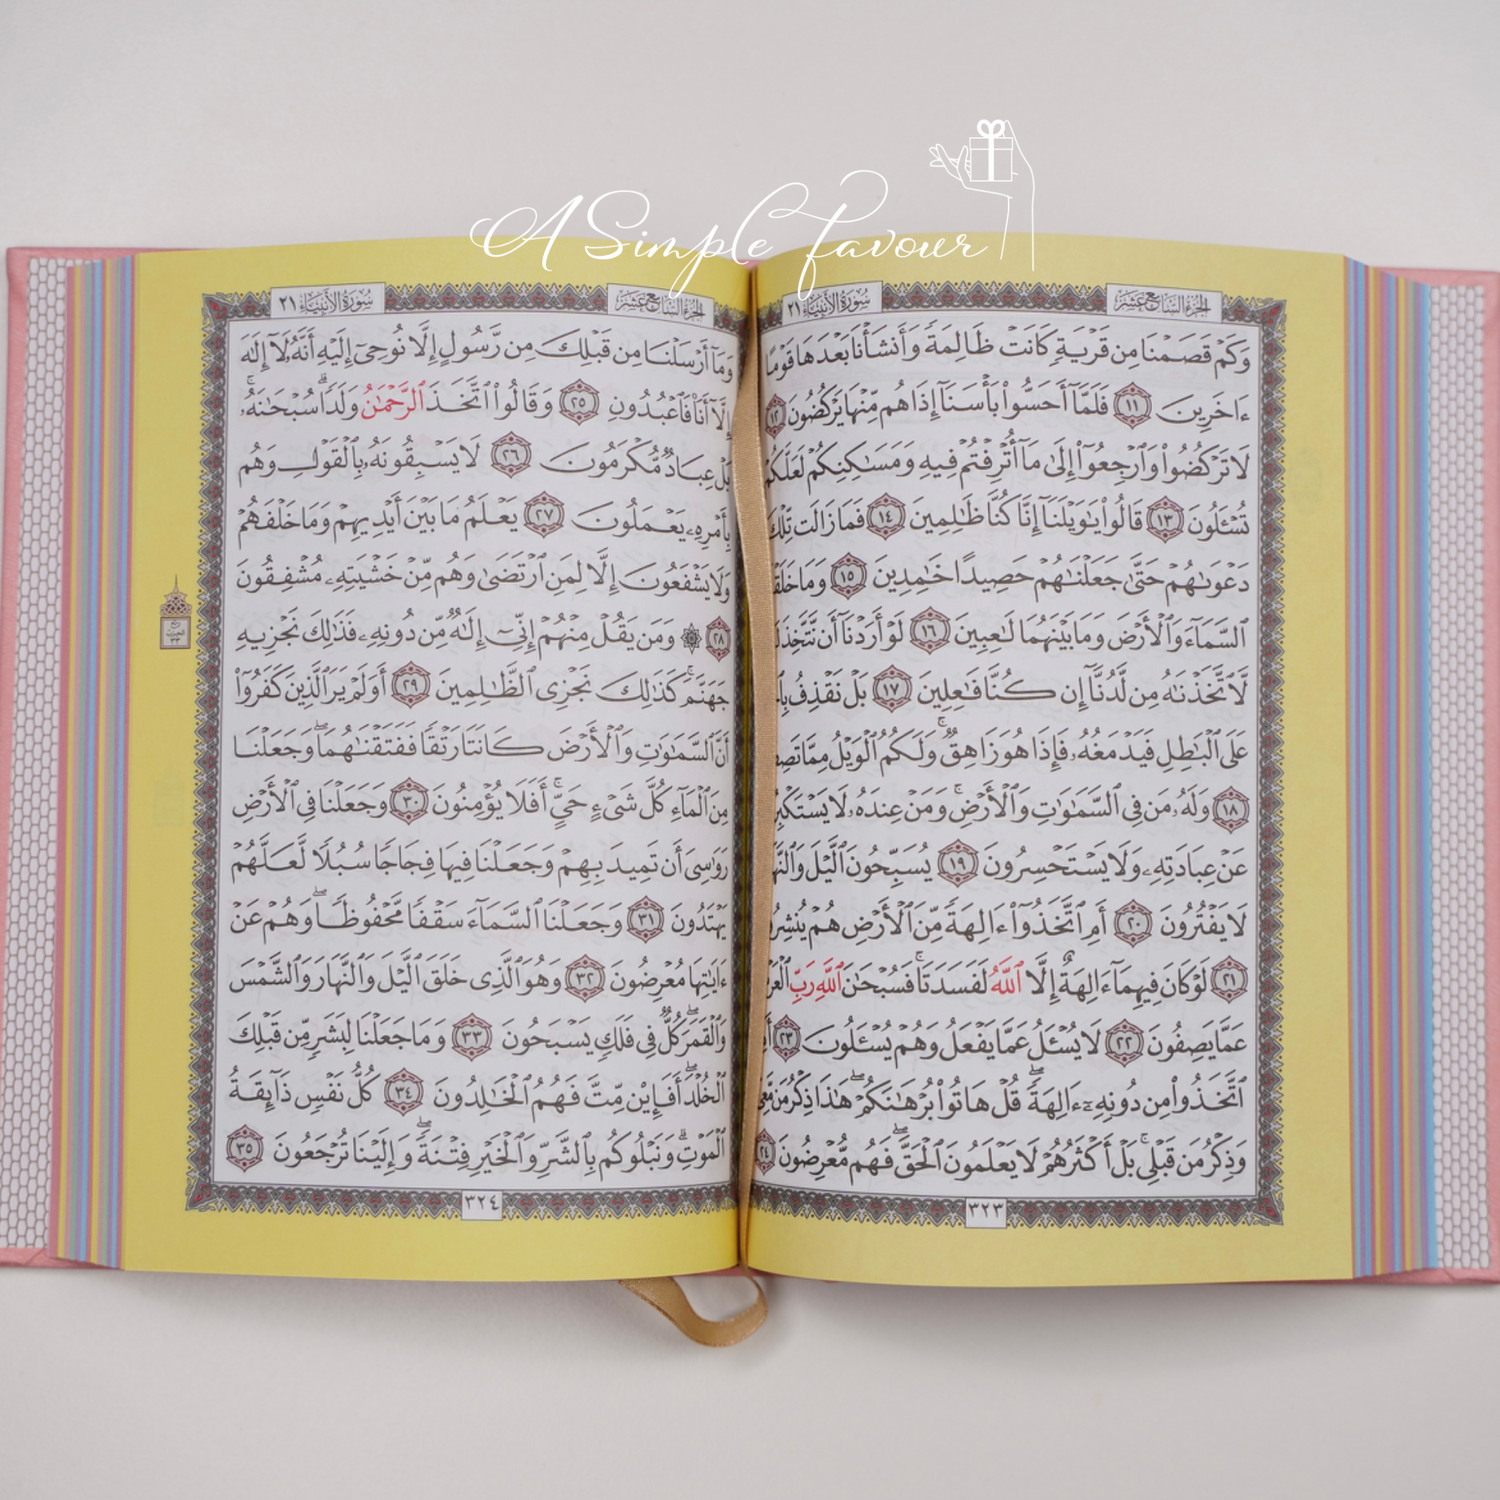 A Simple Favour
الجزء السابع عشر
سورة الأنبياء ٢١
وَكَمْ قَصَمْنَا مِن قَرْيَةٍ كَانَتْ ظَالِمَةً وَأَنشَأْنَا بَعْدَهَا قَوْمًا
ءَاخَرِينَ ١١ فَلَمَّآ أَحَسُّوا۟ بَأْسَنَآ إِذَا هُم مِّنْهَا يَرْكُضُونَ ١٢
لَا تَرْكُضُوا۟ وَٱرْجِعُوٓا۟ إِلَىٰ مَآ أُتْرِفْتُمْ فِيهِ وَمَسَـٰكِنِكُمْ لَعَلَّكُمْ
تُسْـَٔلُونَ ١٣ قَالُوا۟ يَـٰوَيْلَنَآ إِنَّا كُنَّا ظَـٰلِمِينَ ١٤ فَمَا زَالَت تِّلْكَ
دَعْوَىٰهُمْ حَتَّىٰ جَعَلْنَـٰهُمْ حَصِيدًا خَـٰمِدِينَ ١٥ وَمَا خَلَقْنَا
ٱلسَّمَآءَ وَٱلْأَرْضَ وَمَا بَيْنَهُمَا لَـٰعِبِينَ ١٦ لَوْ أَرَدْنَآ أَن نَّتَّخِذَ
لَّٱتَّخَذْنَـٰهُ مِن لَّدُنَّآ إِن كُنَّا فَـٰعِلِينَ ١٧ بَلْ نَقْذِفُ
عَلَى ٱلْبَـٰطِلِ فَيَدْمَغُهُۥ فَإِذَا هُوَ زَاهِقٌ ۚ وَلَكُمُ ٱلْوَيْلُ مِمَّا تَصِفُونَ
١٨ وَلَهُۥ مَن فِى ٱلسَّمَـٰوَٰتِ وَٱلْأَرْضِ ۚ وَمَنْ عِندَهُۥ لَا يَسْتَكْبِرُونَ
عَنْ عِبَادَتِهِۦ وَلَا يَسْتَحْسِرُونَ ١٩ يُسَبِّحُونَ ٱلَّيْلَ وَٱلنَّهَارَ
لَا يَفْتُرُونَ ٢٠ أَمِ ٱتَّخَذُوٓا۟ ءَالِهَةً مِّنَ ٱلْأَرْضِ هُمْ يُنشِرُونَ
٢١ لَوْ كَانَ فِيهِمَآ ءَالِهَةٌ إِلَّا ٱللَّهُ لَفَسَدَتَا ۚ فَسُبْحَـٰنَ ٱللَّهِ رَبِّ ٱلْعَرْشِ
عَمَّا يَصِفُونَ ٢٢ لَا يُسْـَٔلُ عَمَّا يَفْعَلُ وَهُمْ يُسْـَٔلُونَ ٢٣ أَمِ
ٱتَّخَذُوا۟ مِن دُونِهِۦٓ ءَالِهَةً ۖ قُلْ هَاتُوا۟ بُرْهَـٰنَكُمْ ۖ هَـٰذَا ذِكْرُ مَن مَّعِىَ
وَذِكْرُ مَن قَبْلِى ۗ بَلْ أَكْثَرُهُمْ لَا يَعْلَمُونَ ٱلْحَقَّ ۖ فَهُم مُّعْرِضُونَ ٢٤
٣٢٣
الجزء السابع عشر
سورة الأنبياء ٢١
وَمَآ أَرْسَلْنَا مِن قَبْلِكَ مِن رَّسُولٍ إِلَّا نُوحِىٓ إِلَيْهِ أَنَّهُۥ لَآ إِلَـٰهَ
إِلَّآ أَنَا۠ فَٱعْبُدُونِ ٢٥ وَقَالُوا۟ ٱتَّخَذَ ٱلرَّحْمَـٰنُ وَلَدًا ۗ سُبْحَـٰنَهُۥ ۚ
بَلْ عِبَادٌ مُّكْرَمُونَ ٢٦ لَا يَسْبِقُونَهُۥ بِٱلْقَوْلِ وَهُم
بِأَمْرِهِۦ يَعْمَلُونَ ٢٧ يَعْلَمُ مَا بَيْنَ أَيْدِيهِمْ وَمَا خَلْفَهُمْ
وَلَا يَشْفَعُونَ إِلَّا لِمَنِ ٱرْتَضَىٰ وَهُم مِّنْ خَشْيَتِهِۦ مُشْفِقُونَ
٢٨ ۞ وَمَن يَقُلْ مِنْهُمْ إِنِّىٓ إِلَـٰهٌ مِّن دُونِهِۦ فَذَٰلِكَ نَجْزِيهِ
جَهَنَّمَ ۚ كَذَٰلِكَ نَجْزِى ٱلظَّـٰلِمِينَ ٢٩ أَوَلَمْ يَرَ ٱلَّذِينَ كَفَرُوٓا۟
أَنَّ ٱلسَّمَـٰوَٰتِ وَٱلْأَرْضَ كَانَتَا رَتْقًا فَفَتَقْنَـٰهُمَا ۖ وَجَعَلْنَا
مِنَ ٱلْمَآءِ كُلَّ شَىْءٍ حَىٍّ ۖ أَفَلَا يُؤْمِنُونَ ٣٠ وَجَعَلْنَا فِى ٱلْأَرْضِ
رَوَٰسِىَ أَن تَمِيدَ بِهِمْ وَجَعَلْنَا فِيهَا فِجَاجًا سُبُلًا لَّعَلَّهُمْ
يَهْتَدُونَ ٣١ وَجَعَلْنَا ٱلسَّمَآءَ سَقْفًا مَّحْفُوظًا ۖ وَهُمْ عَنْ
ءَايَـٰتِهَا مُعْرِضُونَ ٣٢ وَهُوَ ٱلَّذِى خَلَقَ ٱلَّيْلَ وَٱلنَّهَارَ وَٱلشَّمْسَ
وَٱلْقَمَرَ ۖ كُلٌّ فِى فَلَكٍ يَسْبَحُونَ ٣٣ وَمَا جَعَلْنَا لِبَشَرٍ مِّن قَبْلِكَ
ٱلْخُلْدَ ۖ أَفَإِي۟ن مِّتَّ فَهُمُ ٱلْخَـٰلِدُونَ ٣٤ كُلُّ نَفْسٍ ذَآئِقَةُ
ٱلْمَوْتِ ۗ وَنَبْلُوكُم بِٱلشَّرِّ وَٱلْخَيْرِ فِتْنَةً ۖ وَإِلَيْنَا تُرْجَعُونَ ٣٥
٣٢٤